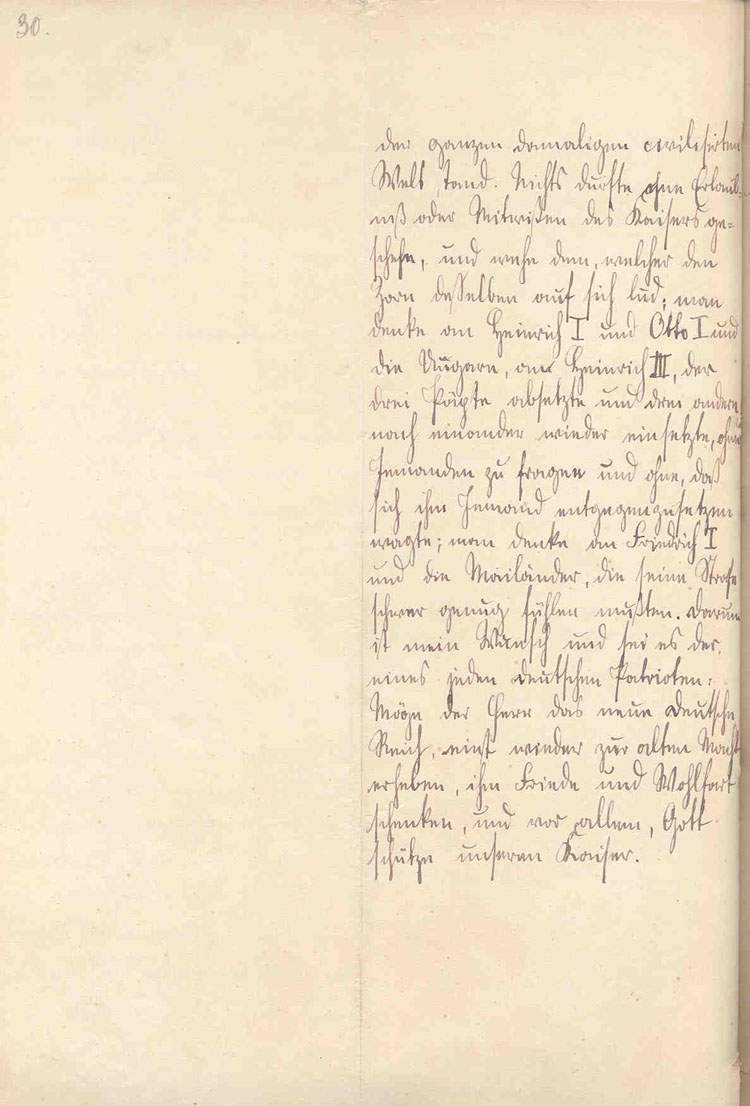 30.
der ganzen damaligen civilisirten
Welt stand. Nichts durfte ohne Erlaub-
niß oder Mitwißen des Kaisers ge=
schehn, und wehe dem, welcher den
Zorn desselben auf sich lud; man
denke an Heinrich I und Otto I und
die Ungarn, an Heinrich III, der
drei Päpste absetzte und drei andere
nach einander wieder einsetzte, ohne
Jemanden zu fragen und ohne, daß
sich ihm Jemand entgegenzusetzen
wagte; man denke an Friedrich I
und die Mailänder, die seine Strafe
schwer genug fühlen mußten. Darum
ist mein Wunsch und sei es der
eines jeden deutschen Patrioten:
Möge der Herr das neue deutsche
Reich, einst wieder zur alten Macht
erheben, ihm Friede und Wohlfart
schenken, und vor allem, Gott
schütze unseren Kaiser.